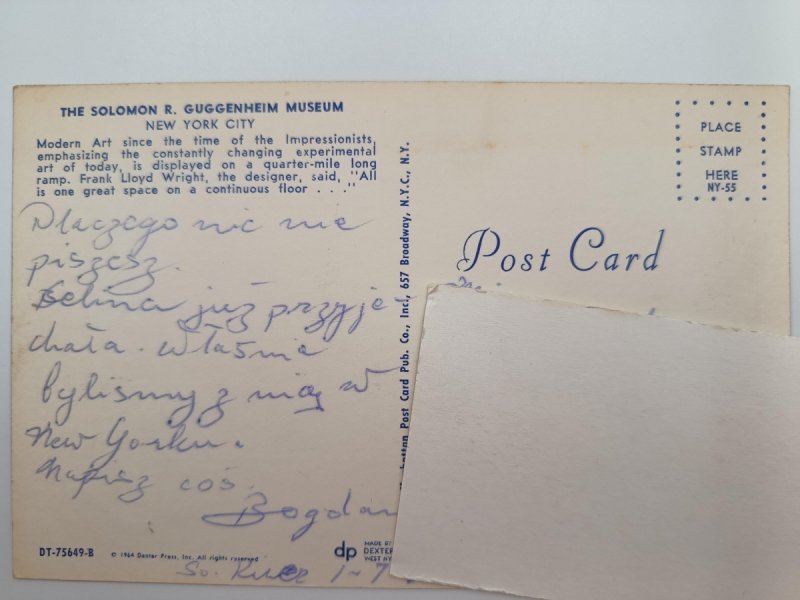 THE SOLOMON R. GUGGENHEIM MUSEUM
NEW YORK CITY
Modern Art since the time of the Impressionists,
emphasizing the constantly changing experimental
art of today, is displayed on a quarter-mile long
ramp. Frank Lloyd Wright, the designer, said, "All
is one great space on a continuous floor . . ."
Dlaczego nic nie
piszesz.
Felina już przyje
chała. właśnie
byliśmy z nią w
New Yorku.
Napisz coś.
Bogdan
DT-75649-B
© 1964 Dexter Press, Inc. All rights reserved
So. River 1-7
Post Card Pub. Co., Inc., 657 Broadway, N.Y.C., N.Y.
dp
MADE BY
DEXTER
WEST NY
Post Card
PLACE
STAMP
HERE
NY-55